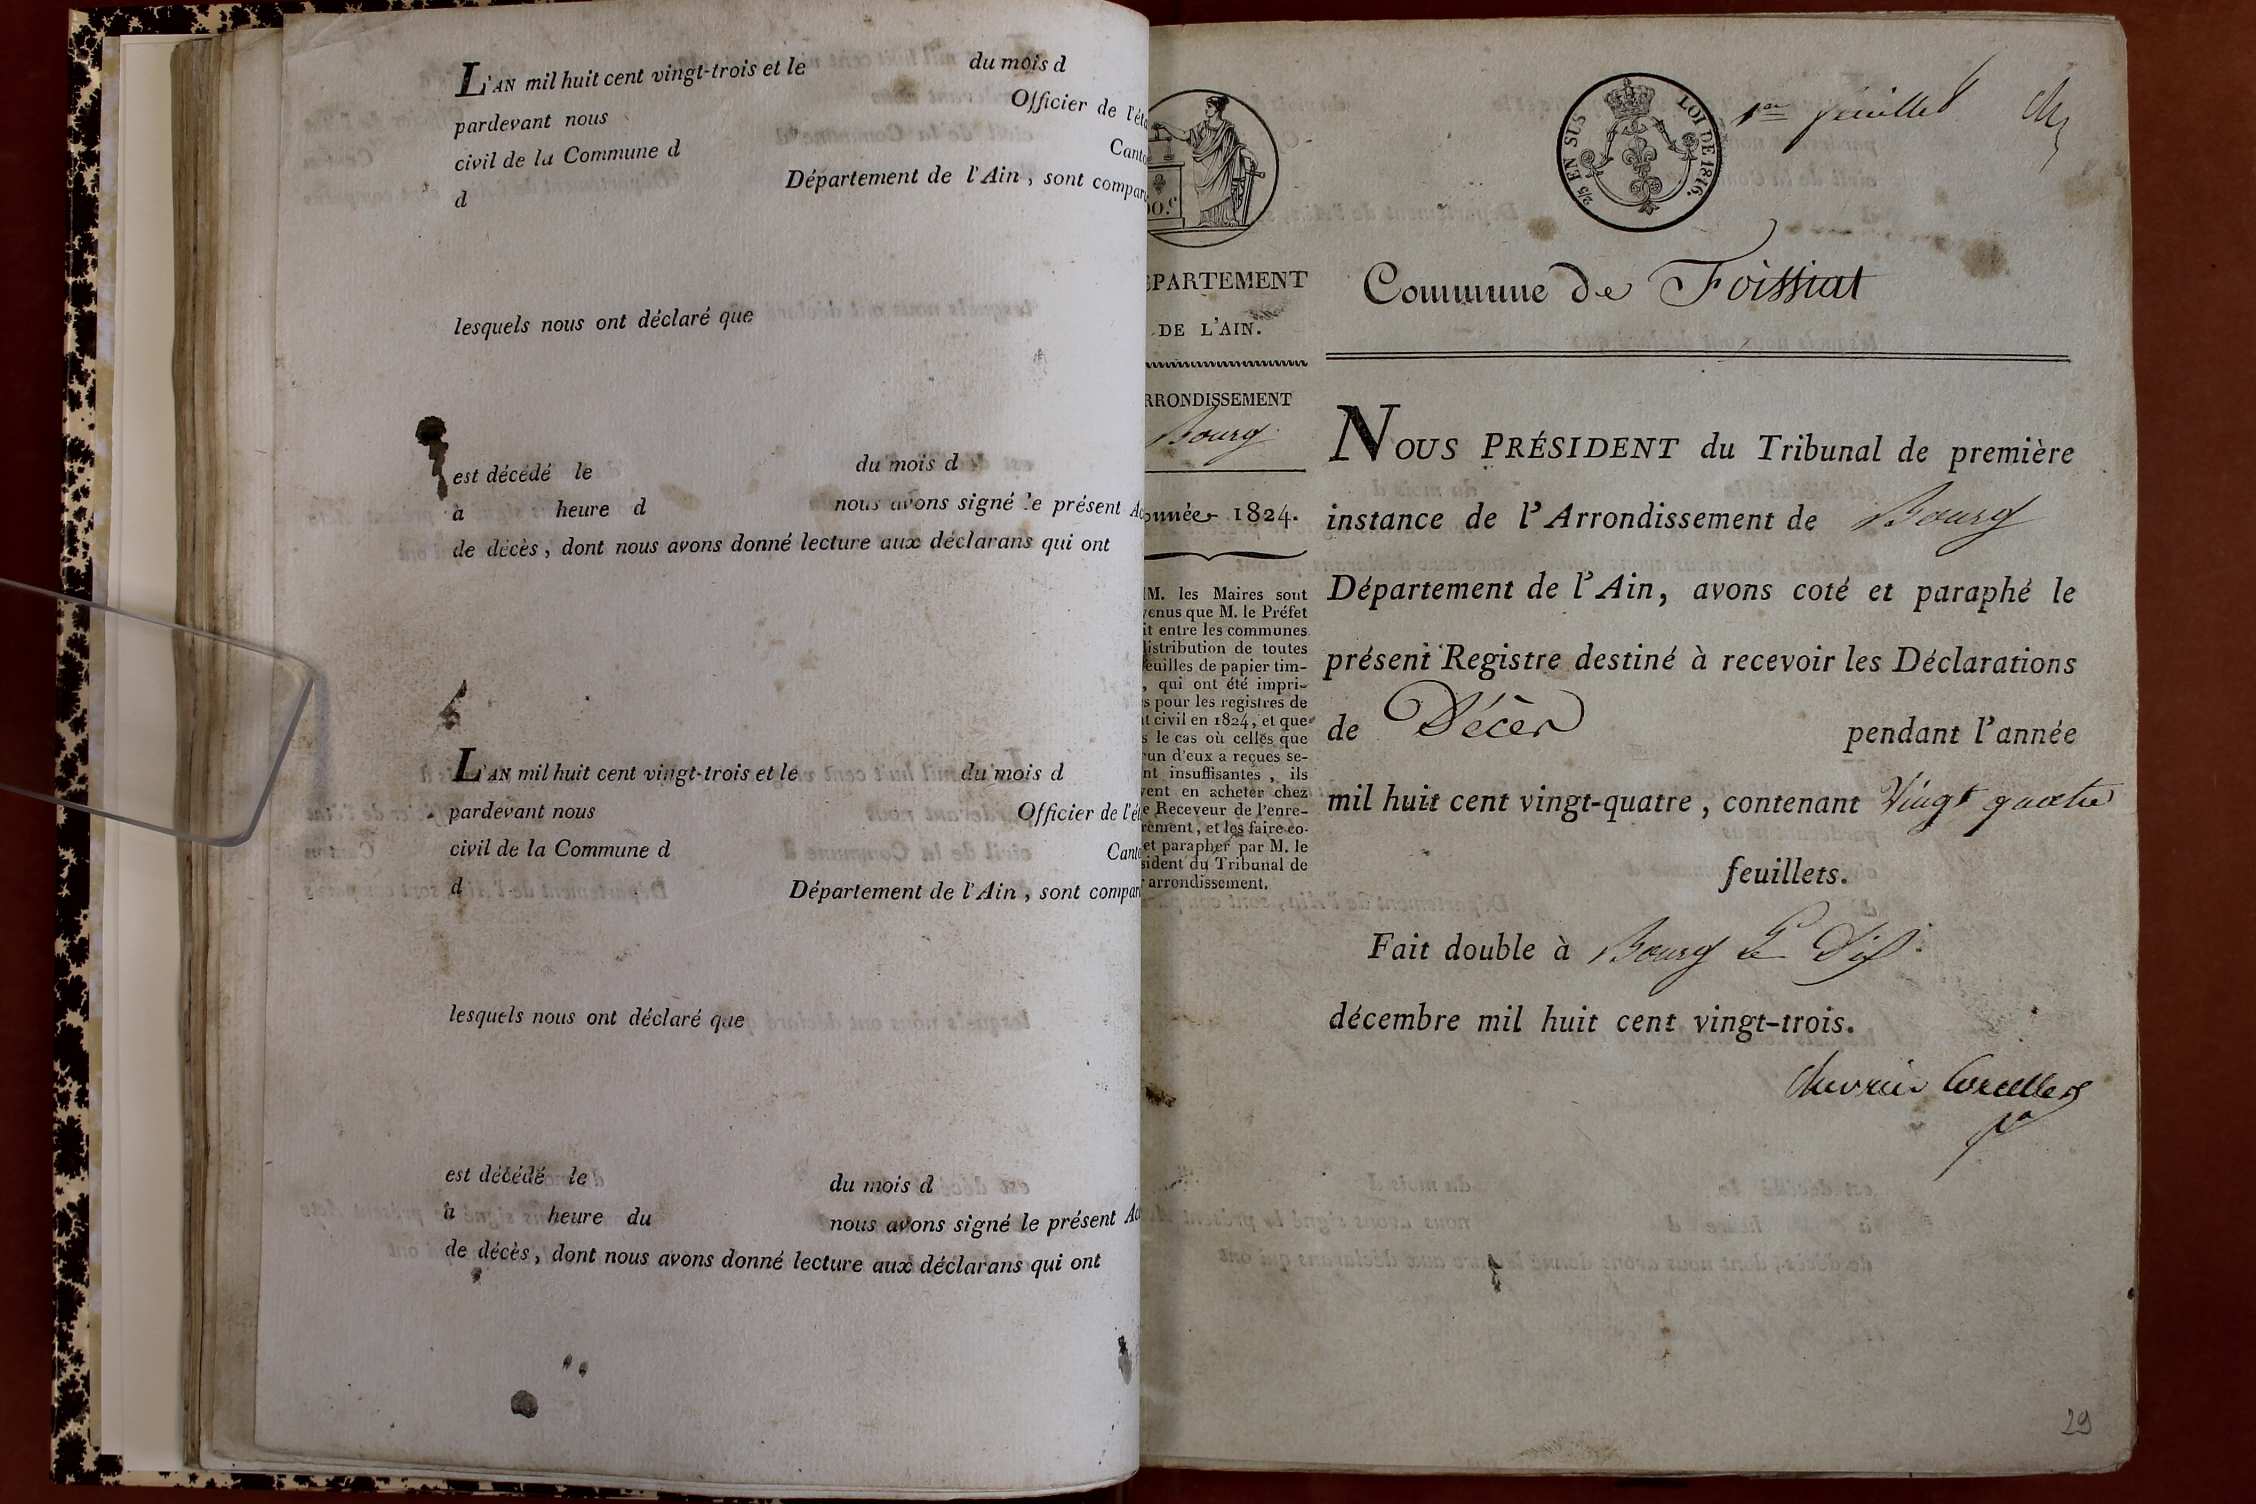 L'AN mil huit cent vingt-trois et le du mois d
pardevant nous Officier de l'éta
civil de la Commune d Canto
d Département de l'Ain, sont compar
lesquels nous ont déclaré que
est décédé le du mois d
à heure d nous avons signé le présent Ac
de décès, dont nous avons donné lecture aux déclarans qui ont
L'AN mil huit cent vingt-trois et le du mois d
pardevant nous Officier de l'ét
civil de la Commune d Canto
d Département de l'Ain, sont compar
lesquels nous ont déclaré que
est décédé le du mois d
à heure du nous avons signé le présent Ac
de décès, dont nous avons donné lecture aux déclarans qui ont
00.c
ÉPARTEMENT
DE L'AIN.
RRONDISSEMENT
Bourg
nnée 1824.
M. les Maires sont
venus que M. le Préfet
it entre les communes
istribution de toutes
feuilles de papier tim-
, qui ont été impri-
s pour les registres de
t civil en 1824, et que
s le cas où celles que
un d'eux a reçues se-
nt insuffisantes, ils
vent en acheter chez
e Receveur de l'enre-
rement, et les faire co-
et parapher par M. le
sident du Tribunal de
r arrondissement.
2/5 EN SUS
LOI DE 1816.
1er feuillet
Commune de Foissiat
NOUS PRÉSIDENT du Tribunal de première
instance de l'Arrondissement de Bourg
Département de l'Ain, avons coté et paraphé le
présent Registre destiné à recevoir les Déclarations
de Décès pendant l'année
mil huit cent vingt-quatre, contenant Vingt quatre
feuillets.
Fait double à Bourg Le Dix
décembre mil huit cent vingt-trois.
29